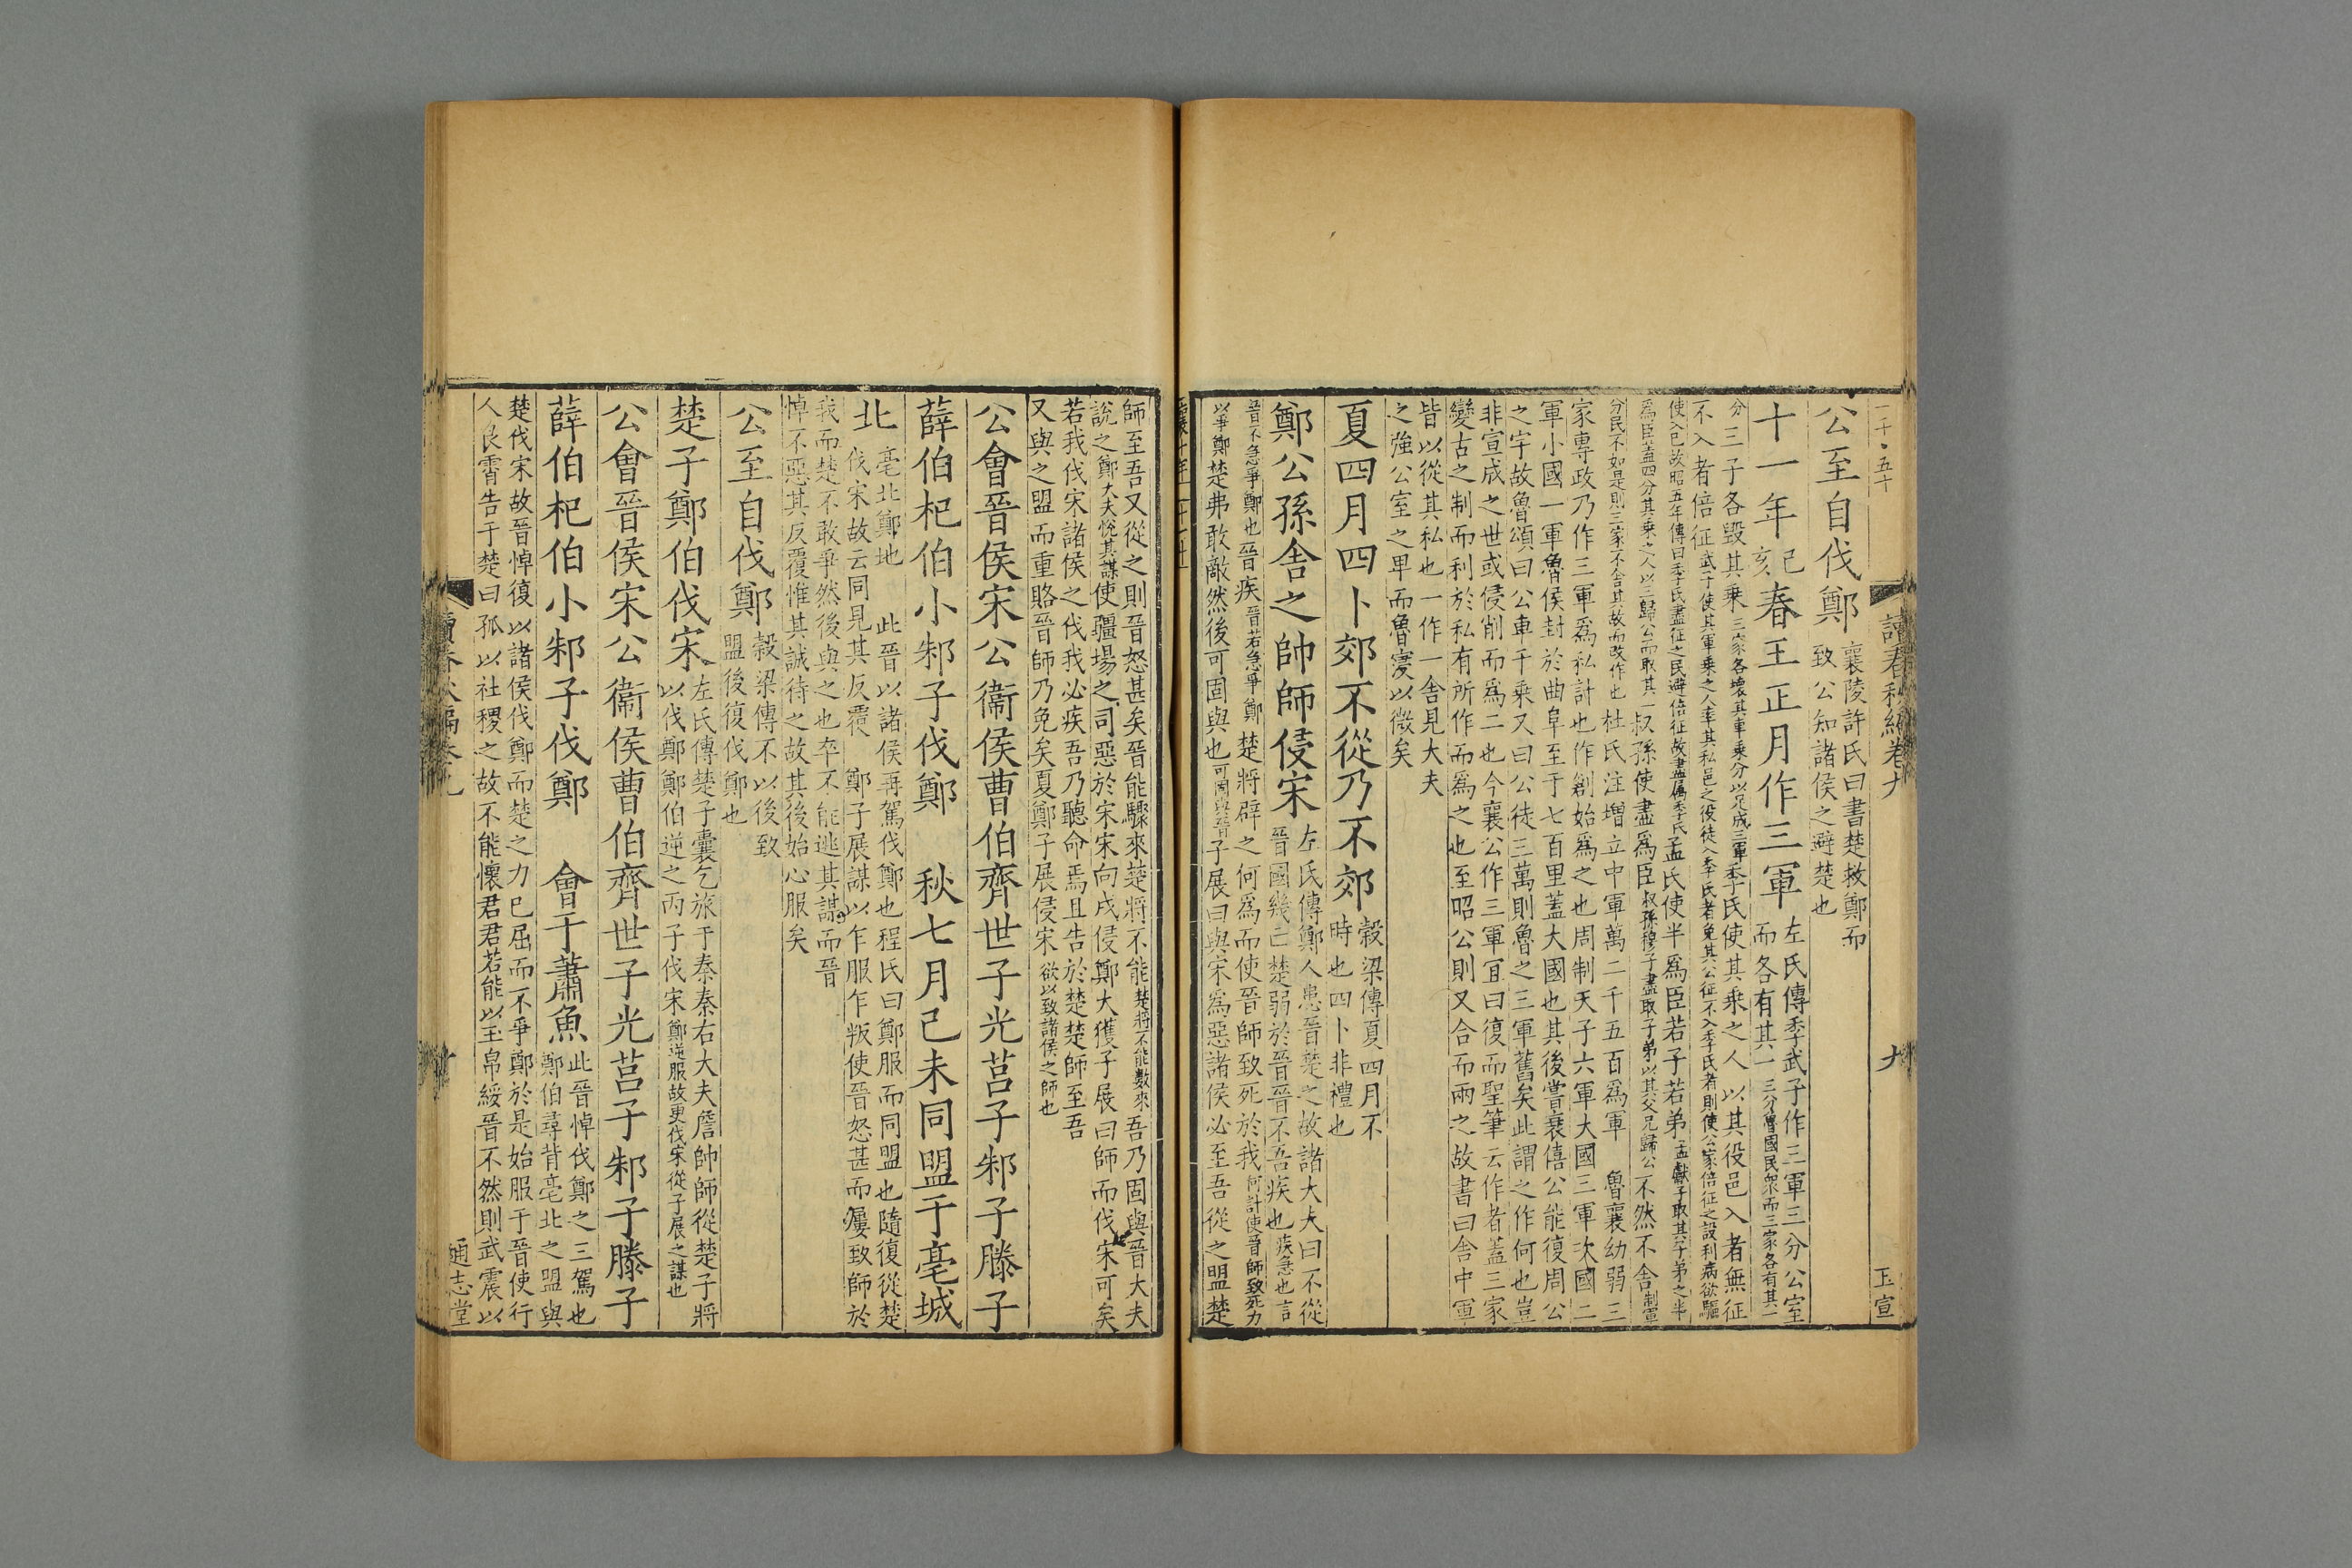 公至自伐鄭
襄陵許氏曰書楚救鄭而
致公知諸侯之避楚也
十一年
己
亥
春王正月作三軍
左氏傳季武子作三軍三分公室
而各有其一
三分魯國民衆而三家各有其一
分
三子各毀其乗
三家各壞其車乗分以足成三軍
季氏使其乗之人以其役邑入者無征
不入者倍征
使半爲臣若子若弟
叔孫使盡爲臣
不然不舍
杜氏注增立中軍萬二千五百爲軍
魯襄幼弱三
家專政乃作三軍爲私計也作創始爲之也周制天子六軍大國三軍次國二
軍小國一軍魯侯封於曲阜至于七百里蓋大國也其後嘗衰僖公能復周公
之宇故魯頌曰公車千乗又曰公徒三萬則魯之三軍舊矣此謂之作何也豈
非宣成之世或侵削而爲二也今襄公作三軍宜曰復而聖筆云作者蓋三家
變古之制而利於私有所作而爲之也至昭公則又合而兩之故書曰舍中軍
皆以從其私也一作一舍見大夫
之強公室之卑而魯寖以微矣
夏四月四卜郊不從乃不郊
穀梁傳夏四月不
時也四卜非禮也
鄭公孫舍之帥師侵宋
左氏傳鄭人患晉楚之故諸大夫曰不從
晉國幾亡楚弱於晉晉不吾疾也
疾急也言
晉不急爭鄭也
晉疾
晉若急爭鄭
楚將辟之何爲而使晉師致死於我
何計使晉師致死力
以爭鄭
楚弗敢敵然後可固與也
可固與晉
子展曰與宋爲惡諸侯必至吾從之盟楚
師至吾又從之則晉怒甚矣晉能驟來楚將不能
楚將不能數來
吾乃固與晉大夫
說之
鄭大夫悅其謀
使疆場之司惡於宋宋向戌侵鄭大獲子展曰師而伐宋可矣
若我伐宋諸侯之伐我必疾吾乃聽命焉且告於楚楚師至吾
又與之盟而重賂晉師乃免矣夏鄭子展侵宋
欲以致諸侯之師也
公會晉侯宋公衞侯曹伯齊世子光莒子邾子滕子
薛伯杞伯小邾子伐鄭　秋七月己未同盟于亳城
北
亳北鄭地　此晉以諸侯再駕伐鄭也程氏曰鄭服而同盟也隨復從楚
伐宋故云同見其反覆　鄭子展謀以乍服乍叛使晉怒甚而屢致師於
我而楚不敢爭然後與之也卒不能逃其謀而晉
悼不惡其反覆惟其誠待之故其後始心服矣
公至自伐鄭
穀梁傳不以後致
盟後復伐鄭也
楚子鄭伯伐宋
左氏傳楚子囊乞旅于秦秦右大夫詹帥師從楚子將
以伐鄭鄭伯逆之丙子伐宋
鄭逆服故更伐宋從子展之謀也
公會晉侯宋公衞侯曹伯齊世子光莒子邾子滕子
薛伯杞伯小邾子伐鄭　會于蕭魚
此晉悼伐鄭之三駕也
鄭伯尋背亳北之盟與
楚伐宋故晉悼復以諸侯伐鄭而楚之力已屈而不爭鄭於是始服于晉使行
人良霄告于楚曰孤以社稷之故不能懷君君若能以玉帛綏晉不然則武震以
通志堂